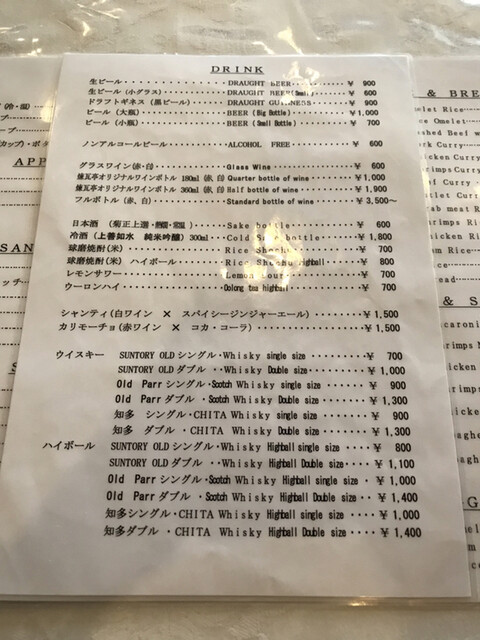 DRINK
生ビール DRAUGHT BEER ¥ 900
生ビール(小グラス) DRAUGHT BEER(Small) ¥ 600
ドラフトギネス(黒ビール) DRAUGHT GUINNESS ¥ 900
ビール(大瓶) BEER(Big Bottle) ¥1,000
ビール(小瓶) BEER(Small Bottle) ¥ 700
ノンアルコールビール ALCOHOL FREE ¥ 600
グラスワイン(赤・白) Glass Wine ¥ 600
煉瓦亭オリジナルワインボトル 180ml(赤,白) Quarter bottle of wine ¥1,000
煉瓦亭オリジナルワインボトル 360ml(赤,白) Half bottle of wine ¥1,900
フルボトル(赤、白) Standard bottle of wine ¥3,500〜
日本酒 (菊正上選・ ) Sake bottle ¥ 600
冷酒(上善如水 純米吟醸)300ml Cold Sake bottle ¥1,800
球磨焼酎(米) Rice ¥ 700
球磨焼酎(米) ハイボール Rice Shochu Highball ¥ 800
レモンサワー Lemon sour ¥ 700
ウーロンハイ Oolong tea highball ¥ 700
シャンティ(白ワイン × スパイシージンジャーエール) ¥1,500
カリモーチョ(赤ワイン × コカ・コーラ) ¥1,500
ウイスキー SUNTORY OLD シングル・Whisky single size ¥ 700
SUNTORY OLD ダブル ・・Whisky Double size ¥1,000
Old Parr シングル・Scotch Whisky single size ¥ 900
Old Parr ダブル ・Scotch Whisky Double size ¥1,300
知多 シングル・CHITA Whisky single size ¥ 900
知多 ダブル ・CHITA Whisky Double size ¥1,300
ハイボール SUNTORY OLD シングル・Whisky Highball single size ¥ 800
SUNTORY OLD ダブル ・・Whisky Highball Double size ¥1,100
Old Parr シングル・Scotch Whisky Highball single size ¥1,000
Old Parr ダブル ・Scotch Whisky Highball Double size ¥1,400
知多シングル・CHITA Whisky Highball single size ¥1,000
知多ダブル ・CHITA Whisky Highball Double size ¥1,400
APP
SAN
& BRE
Rice
Omelet
Beef
Curry
Chicken Curry
Curry
Beef Curry
Curry
meat Rice
Rice
Rice
& S